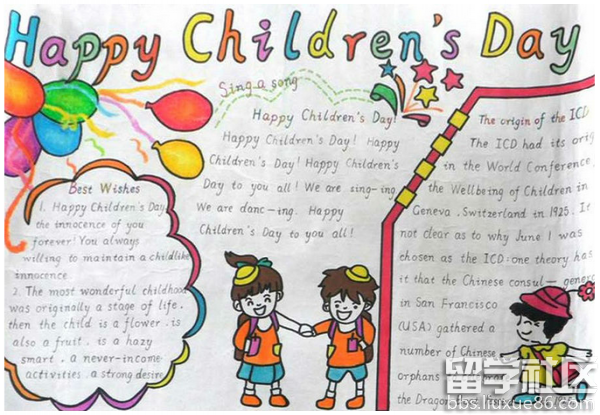 Happy Children's Day
Sing a song
Happy Children's Day!
Happy Children's Day! Happy
Children's Day! Happy Children's
Day to you all! We are sing-ing
We are danc-ing. Happy
Children's Day to you all!
Best Wishes
1. Happy Children's Day
the innocence of you
forever! You always
willing to maintain a childlike
innocence
2. The most wonderful childhood
was originally a stage of life.
then the child is a flower. is
also a fruit. is a hazy
smart. a never-income
activities. a strong desire
The origin of the ICD
The ICD had its ori
in the World Conference
the Wellbeing of Children in
Geneva, Switzerland in 1925. It
not clear as to why June 1 was
chosen as the ICD: one theory has
it that the Chinese consul- gener
in San Francisco
(USA) gathered a
number of Chinese
orphans
the Dragon
留学社区
bbs.liuxue86.com